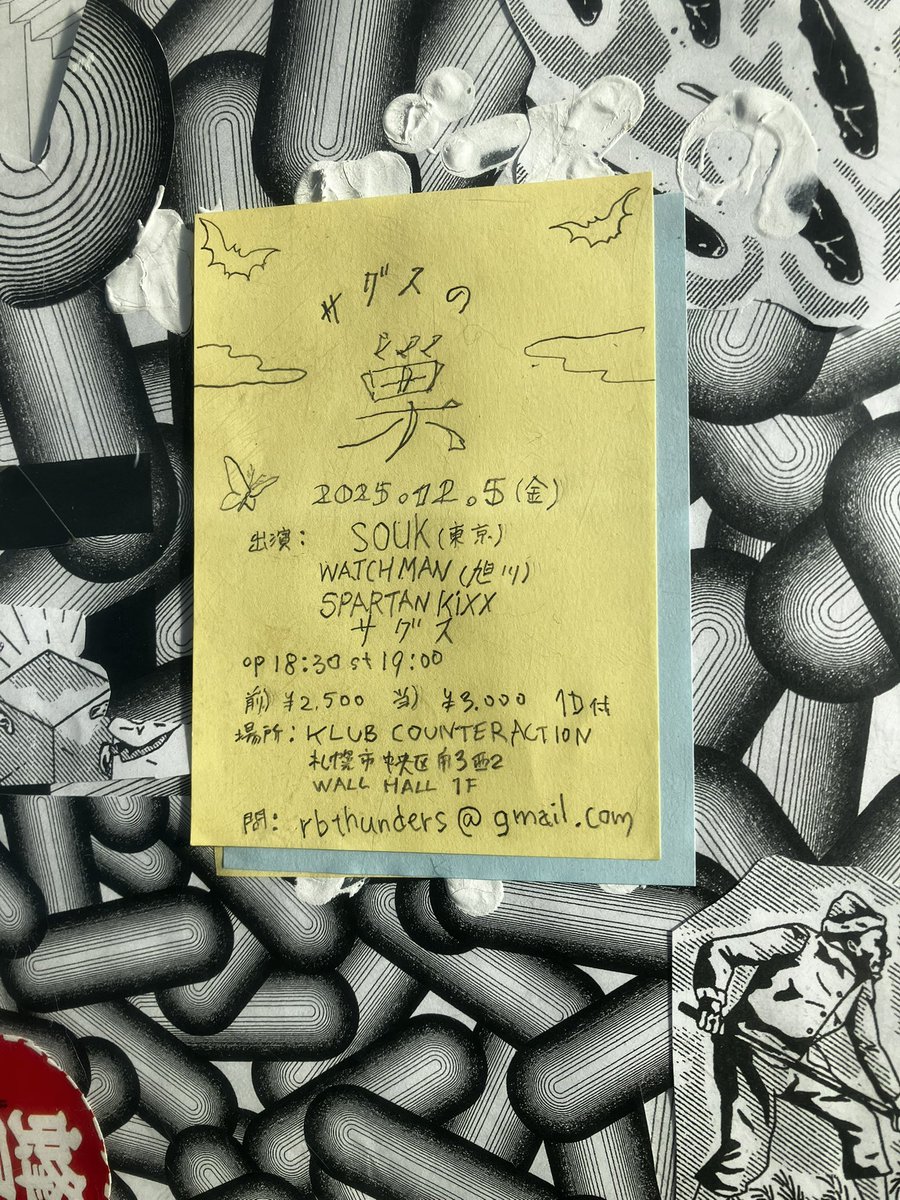 サグスの
巣
2025.12.5(金)
出演: SOUK(東京)
WATCHMAN(旭川)
SPARTAN KiXX
サグス
op 18:30 st 19:00
前) ¥2,500 当) ¥3.000 1D付
場所: KLUB COUNTERACTION
札幌市中央区南3西2
WALL HALL 1F
問: rbthunders@gmail.com